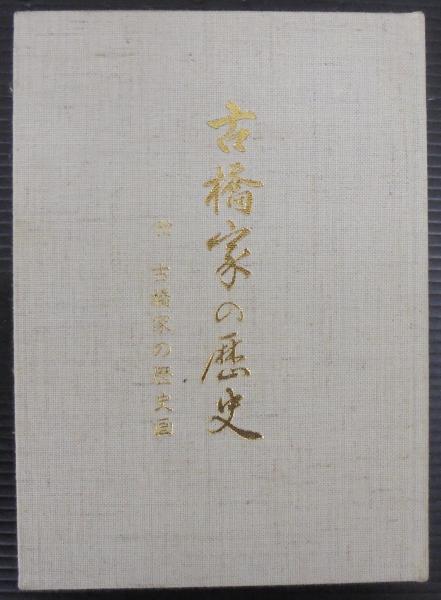 古橋家の歴史
付 古橋家の歴史画